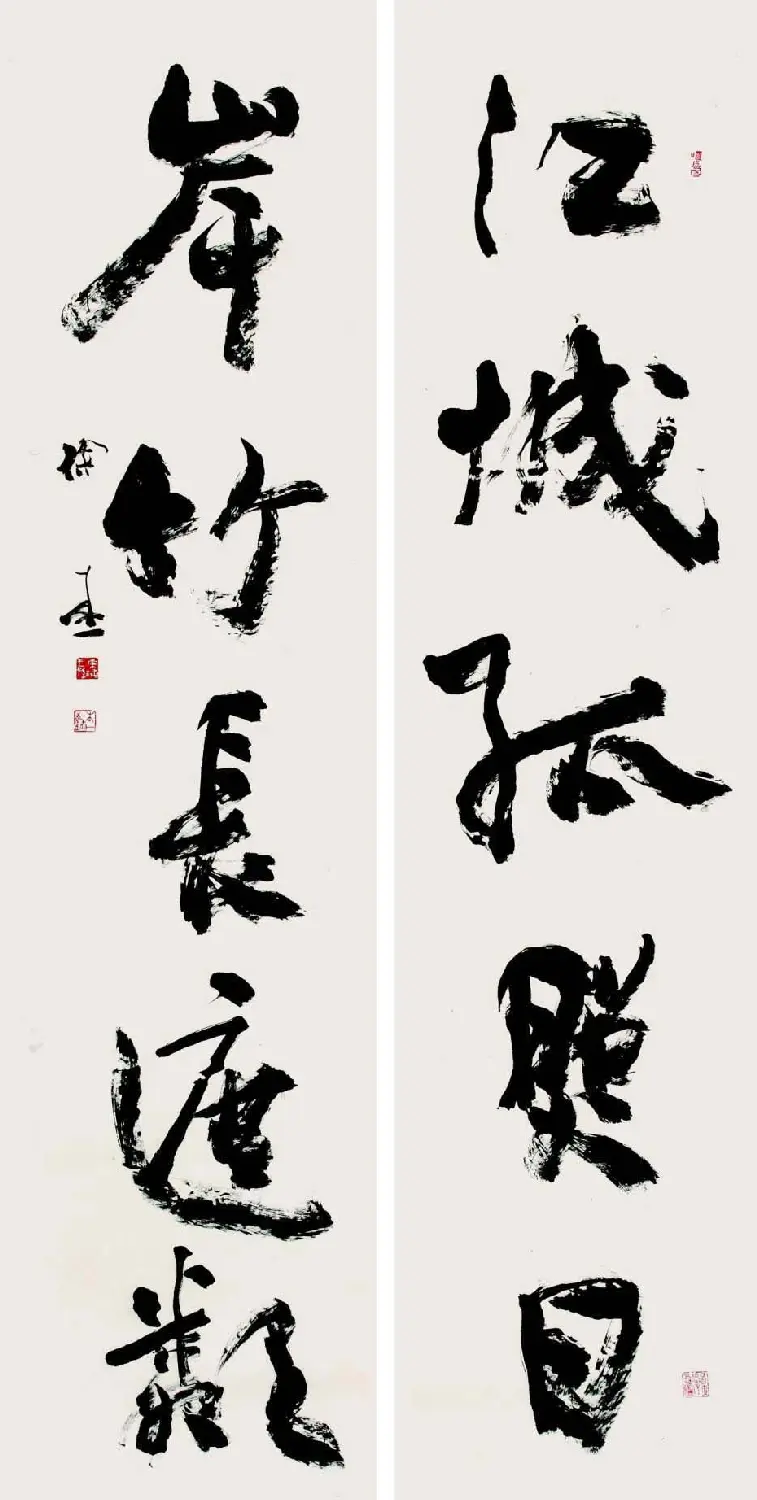 江城孤照日
岸竹長遮
徐